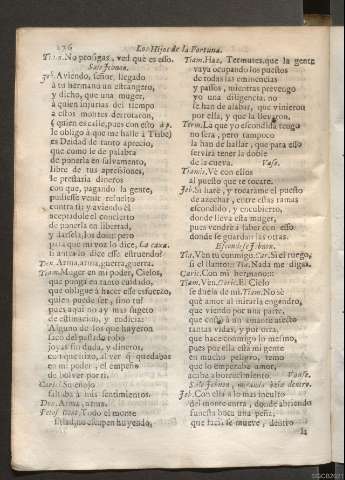 176
Los Hijos de la Fortuna.
No prosigas, ved què es esso.
Sale Jebnon.
Jeb. Aviendo, señor, llegado
à tu hermano un estrangero,
y dicho, que una muger,
à quien injurias del tiempo
à estos montes derrotaron,
le obligò à que me halle à
es Deidad de tanto aprecio,
que como le dè palabra
de ponerla en salvamento,
libre de tus aprisiones,
le prestaria dineros
con que, pagando la gente,
pudiesse venir resuelto
contra ti: y aviendo èl
aceptadole el concierto
de ponerla en libertad,
y darsela, los dos; pero
para què mi voz lo dice, La caxa.
si antes lo dice esse estruendo?
Den. Arma, arma, guerra, guerra.
Tiam. Muger en mi poder, Cielos,
que ponga en tanto cuidado,
que obligue à hacer esse esfuerzo,
quien puede ser, sino tu?
pues aqui no ay mas sugeto
de estimacion, y codicia:
Alguno de los que huyeron
sacò del passado robo
joyas sin duda, y dineros,
con que hizo, al ver q̃ quedabas
en mi poder, el empeño
de bolver por ti.
Caric. Su enojo
faltaba à mis sentimientos.
Den. Arma, arma.
Todo el monte
huyendo,
Tiam. Haz, Termutes, que la gente
vaya ocupando los puestos
de todas las eminencias
y passos, mientras prevengo
yo una diligencia: no
se han de alabar, que vinieron
por ella, y que la llevaron.
Term. La que yo escondida tengo
no serà, pero tampoco
la han de hallar, que para esso
servirà tener la doble
de la cueva. Vase.
Tiamis. Vè con essos
al puesto que te tocare.
Jeb. Si harè, y tocarame el puesto
de azechar, entre estas ramas
escondido, y encubierto,
donde lleva esta muger,
pues vendrè à saber con esso
donde se guardan las otras.
Escondese Jebnon.
Tia. Ven tu conmigo. Car. Si el ruego,
si el llanto: Tia. Nada me digas.
Caric. Con mi hermano:
Tiam. Ven. Caric. El Cielo
se duela de mi. Tiam. No sè
què amor al mirarla engendro,
que viendo por una parte,
que cuesta à un amante afecto
tantas vidas, y por otra,
que hace conmigo lo mesmo,
pues por ella està mi gente
en mucho peligro, temo
que lo empezaba amor,
acaba aborrecimiento. Vanse.
Sale Jebnon, mirando hàzia dentro.
Jeb. Con ella à lo mas inculto
del monte entra, donde abriendo
funesta boca una peña,
que facil se mueve, dentro